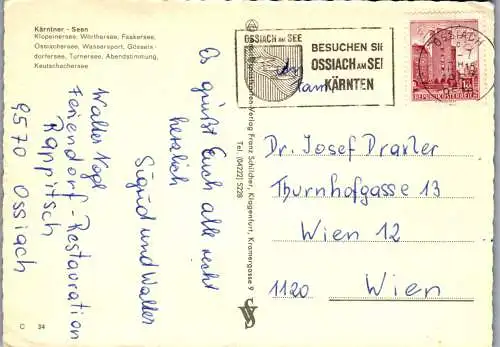 Kärntner - Seen
Klopeinersee, Wörthersee, Faakersee,
Ossiachersee, Wassersport, Gösselsdorfersee,
Turnersee, Abendstimmung,
Keutschachersee
Es grüßt Euch alle recht
herzlich
Sigrid und Walter
Walter Vogl
Feriendorf-Restauration
Rappitsch
9570 Ossiach
C 34
Verlag Franz Schilcher, Klagenfurt, Kramergasse 9
Tel. (04222) 5228
OSSIACH AM SEE
BESUCHEN SIE
OSSIACH AM SEE
KÄRNTEN
OSSIACH
REPUBLIK ÖSTERREICH
Dr. Josef Draxler
Thurnhofgasse 13
Wien 12
1120 Wien